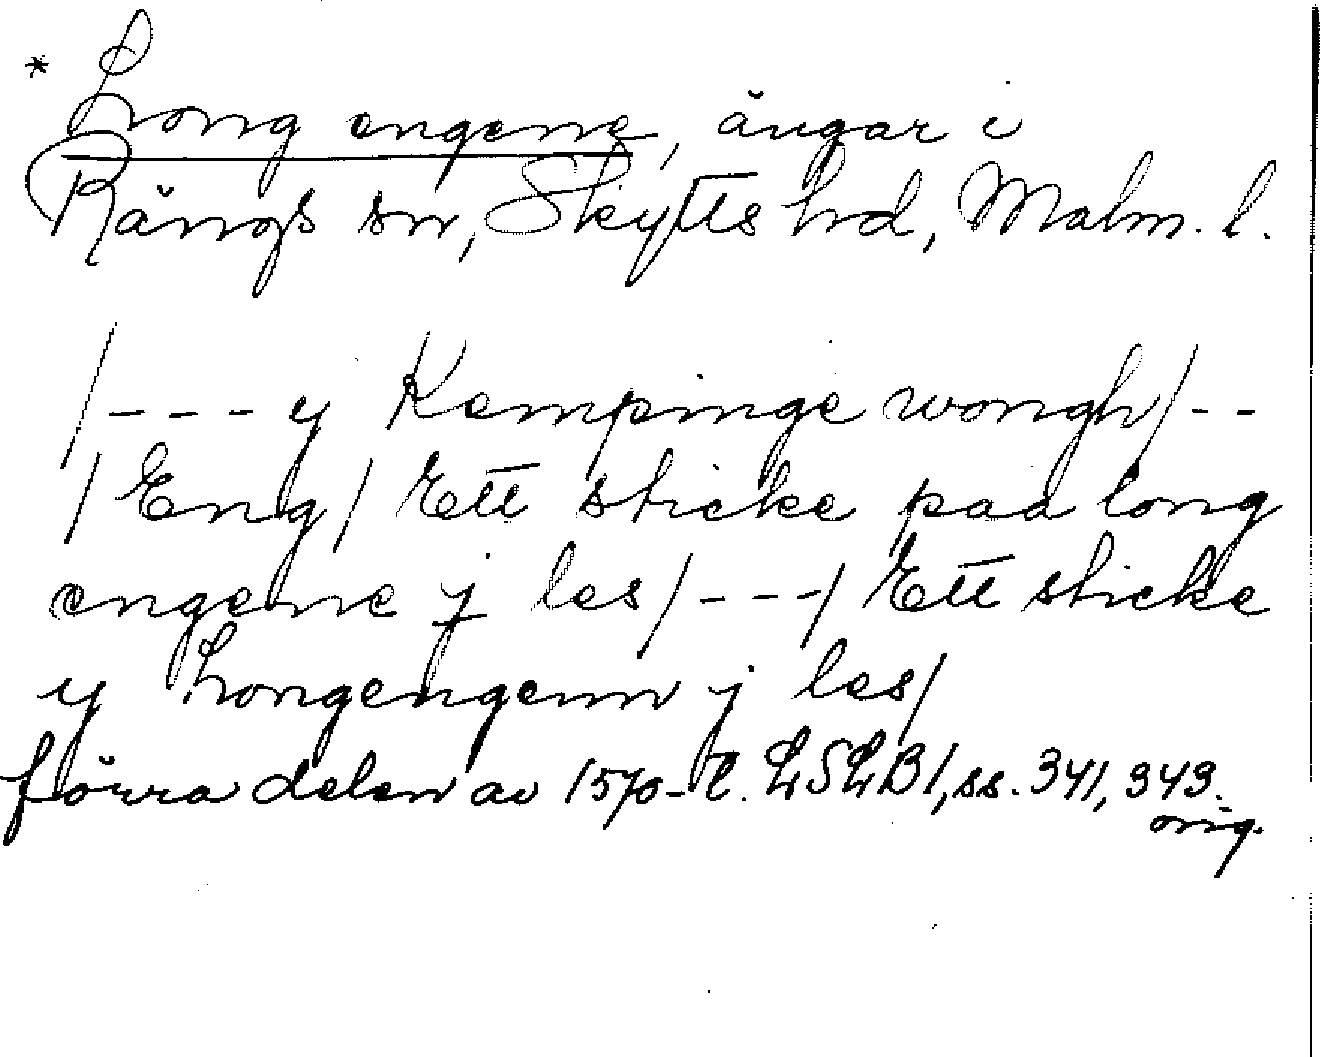 * Long engene, ängar i
Rängs sn, Skytts hd, Malm. l.
/--- y Kempinge wongh/--
/Eng/ Ett sticke paa long
engene j les/---/ Ett sticke
y Longengenn j les/
förra delen av 1570-t. LSLB1, ss. 341, 343.
orig.